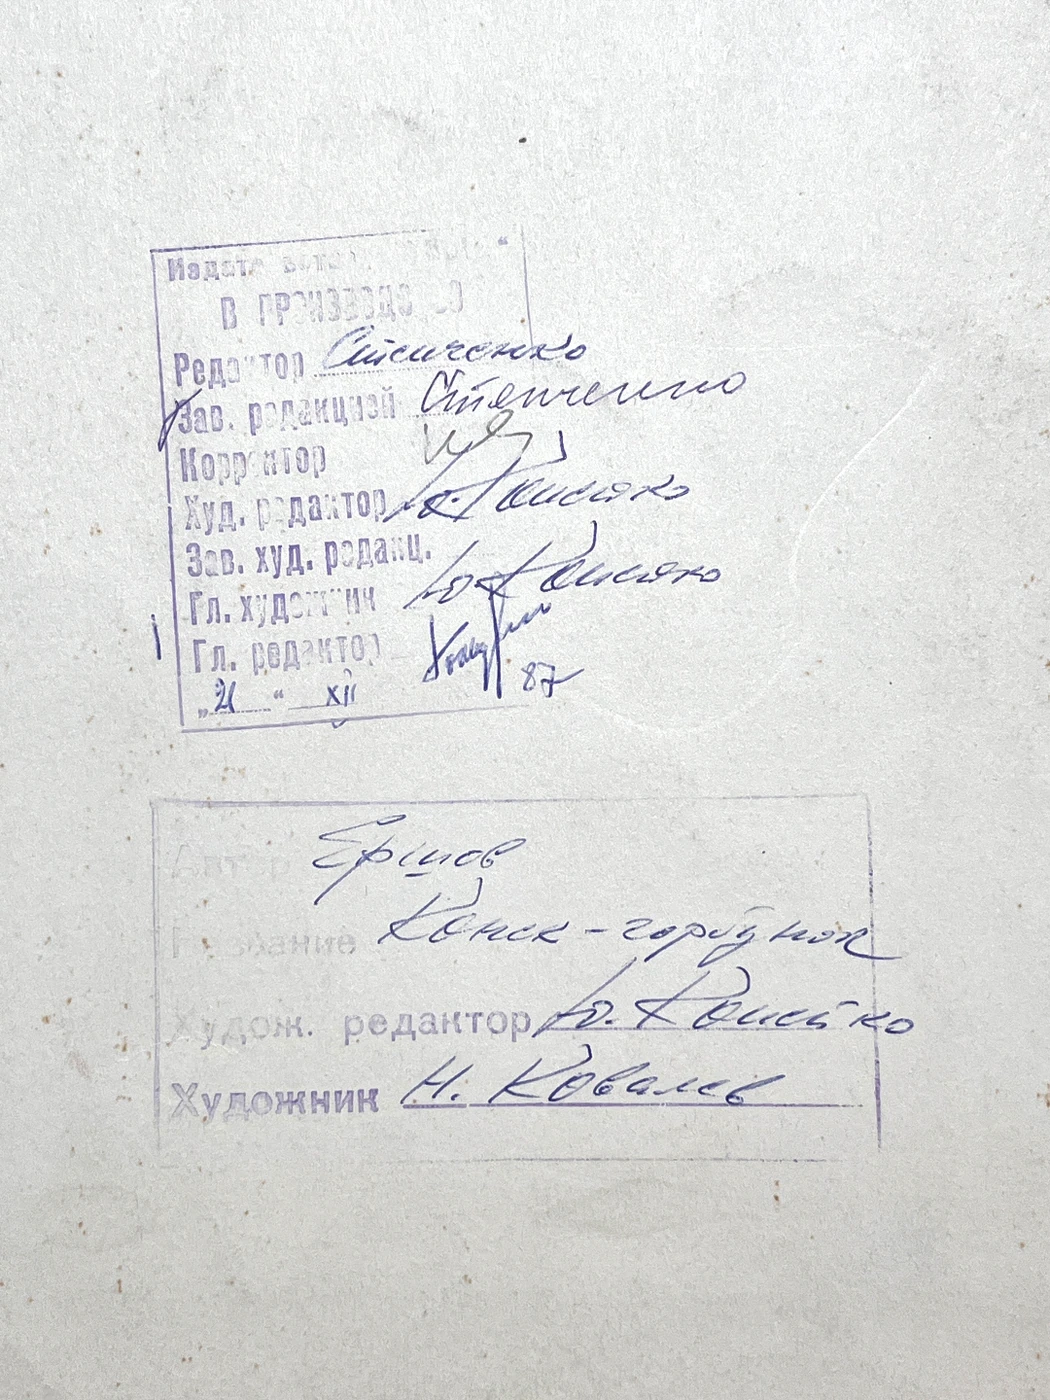 В ПРОИЗВОДСТВО
Редактор Степченко
Зав. редакцией Степченко
Корректор
Худ. редактор Ю.
Зав. худ. редакц.
Гл. художник Ю.
Гл. редактор
„21“ XII 87
Автор Ершов
Название Конек-горбунок
Худож. редактор Ю.
Художник Н. Ковалев